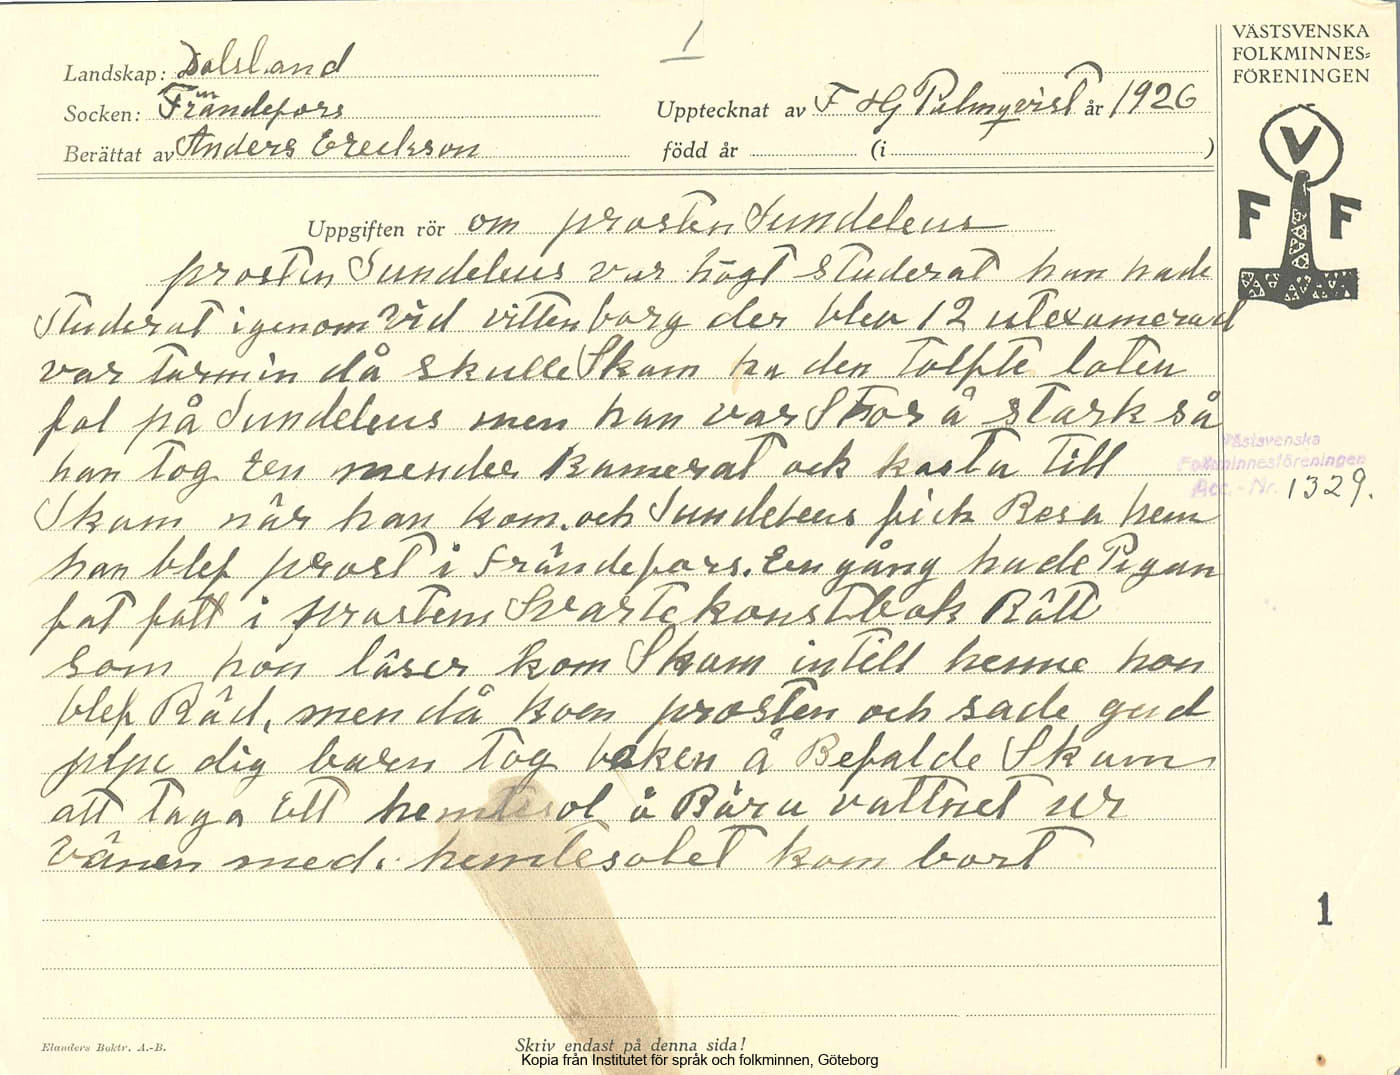 1
Landskap: Dalsland
Socken: Frändefors
Berättat av Anders Ereckson
Upptecknat av F HG Palmqvist år 1926
född år (i )
VÄSTSVENSKA
FOLKMINNES=
FÖRENINGEN
V
F F
Uppgiften rör om prosten Sundeleus
prosten Sundeleus var högt studerat han hade
Studerat igenom vid vittenborg der blev 12 utexamerad
var tarmin då skulle Skam ha den tolfte loten
fol på Sundeleus men han var Stor å stark så
han tog En mendes kamerat ock kasta till
Skam når han kom. och Sundeleus fick Resa hem
han blef prost i Frändefors. En gång hade Pigan
fat fatt i prostens Svartekonstbok Rätt
som hon läser kom Skam in till henne hon
blef Räd, men då kom prosten och sade gud
dig barn tog boken å Befalde Skam
att taga Ett hemtesol å Bära vattnet ur
Vänen med. hemtesolet kom bort
Västsvenska
Folkminnesföreningen
Acc.-Nr. 1329.
1
Elanders Boktr. A.-B.
Skriv endast på denna sida!
Kopia från Institutet för språk och folkminnen, Göteborg